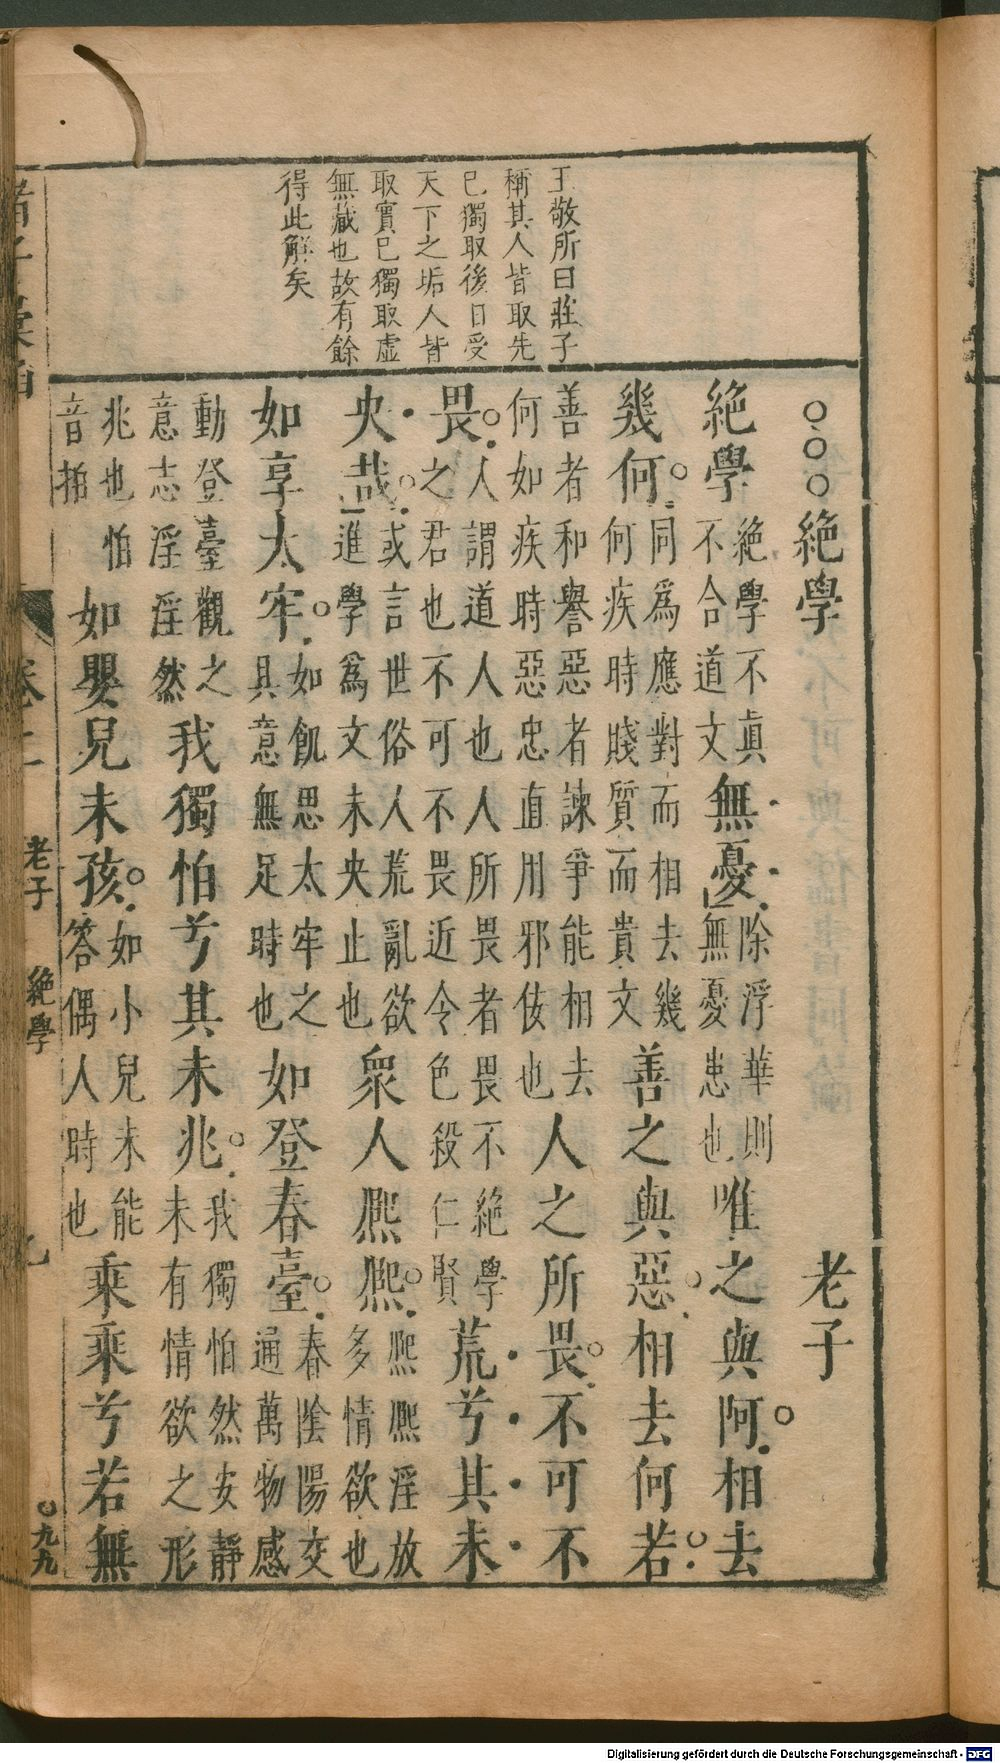 王敬所曰莊子
稱其人皆取先
己獨取後曰受
天下之垢人皆
取實己獨取虛
無藏也故有餘
得此解矣
○○○絕學 老子
絕學絕學不眞不合道文無憂除浮華則無憂患也唯之與阿相去
幾何同爲應對而相去幾何疾時賤質而貴文善之與惡相去何若
善者和譽惡者諫爭能相去何如疾時惡忠直用邪佞也人之所畏不可不
畏人謂道人也人所畏者畏不絕學之君也不可不畏近令色殺仁賢荒兮其未
央哉或言世俗人荒亂欲進學爲文未央止也衆人熈熈熈熈淫放多情欲也
如享太牢如飢思太牢之具意無足時也如登春臺春陰陽交通萬物感
動登臺觀之意志淫淫然我獨怕兮其未兆我獨怕然安靜未有情欲之形
兆也怕音拍如嬰兒未孩如小兒未能答偶人時也乘乘兮若無
卷二 老子 絕學 九
九九
Digitalisierung gefördert durch die Deutsche Forschungsgemeinschaft - DFG